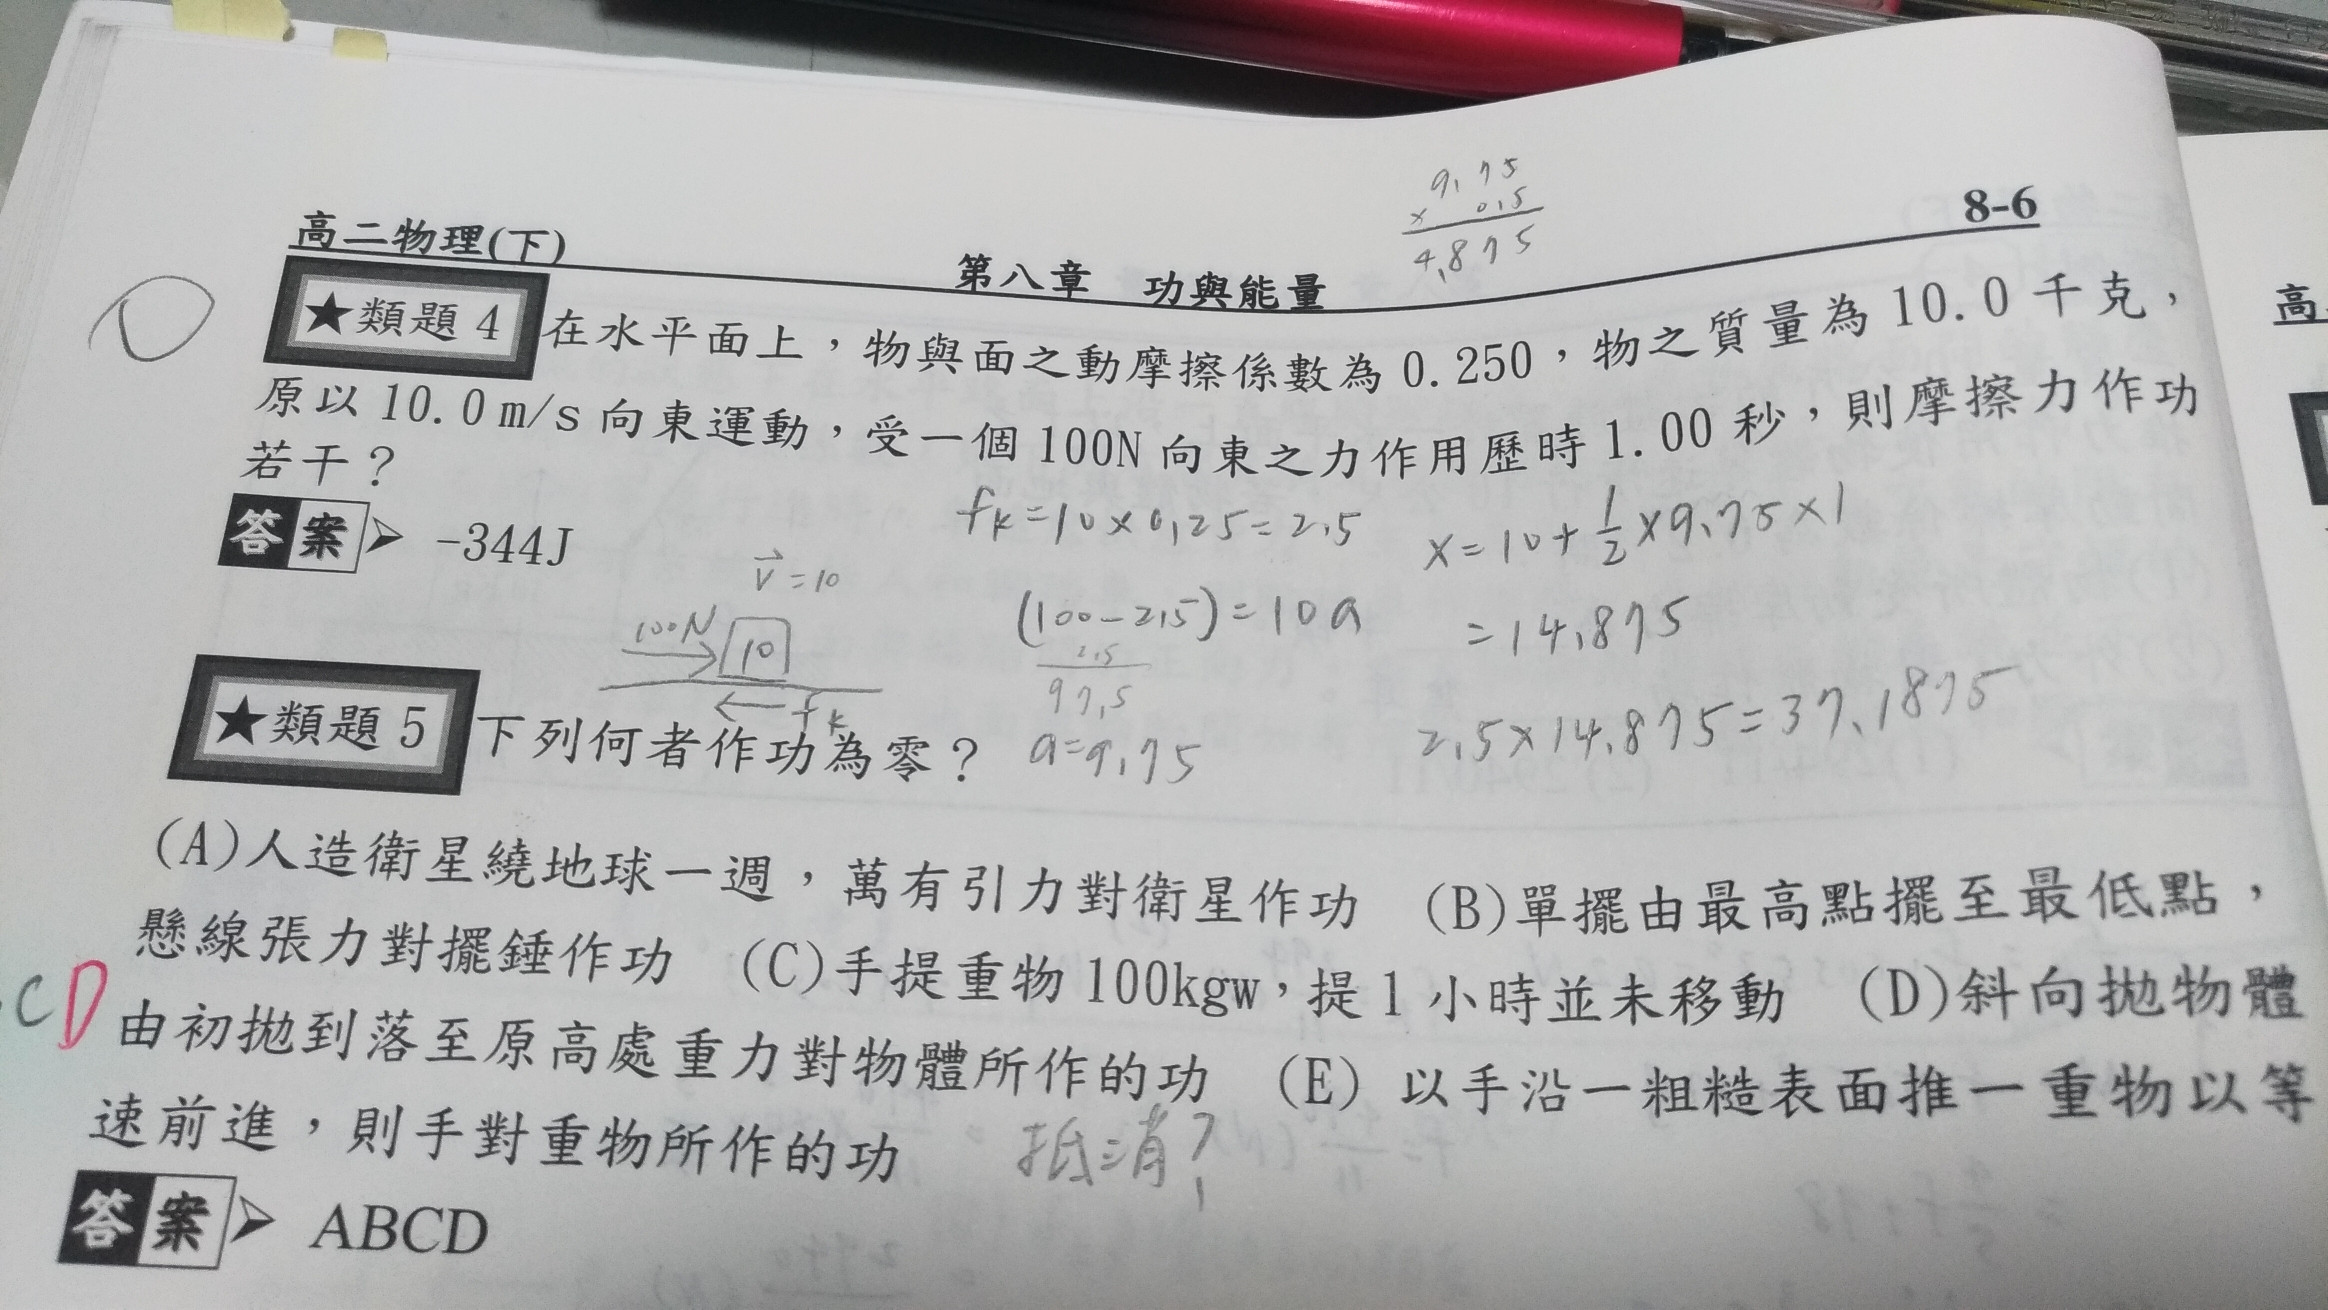 9.75
× 0.5
4.875
高二物理(下)
第八章 功與能量
8-6
★類題 4 在水平面上，物與面之動摩擦係數為 0.250，物之質量為 10.0 千克，
原以 10.0 m/s 向東運動，受一個 100N 向東之力作用歷時 1.00 秒，則摩擦力作功
若干？
答案 -344J
fk=10×0.25=2.5
x=10+1/2×9.75×1
v=10
100N 10
(100-2.5)=10a
=14.875
2.5
97.5
fk
a=9.75
2.5×14.875=37.1875
★類題 5 下列何者作功為零？
(A)人造衛星繞地球一週，萬有引力對衛星作功 (B)單擺由最高點擺至最低點，
懸線張力對擺錘作功 (C)手提重物 100kgw，提 1 小時並未移動 (D)斜向拋物體
CD
由初拋到落至原高處重力對物體所作的功 (E) 以手沿一粗糙表面推一重物以等
速前進，則手對重物所作的功
抵消?
答案 ABCD